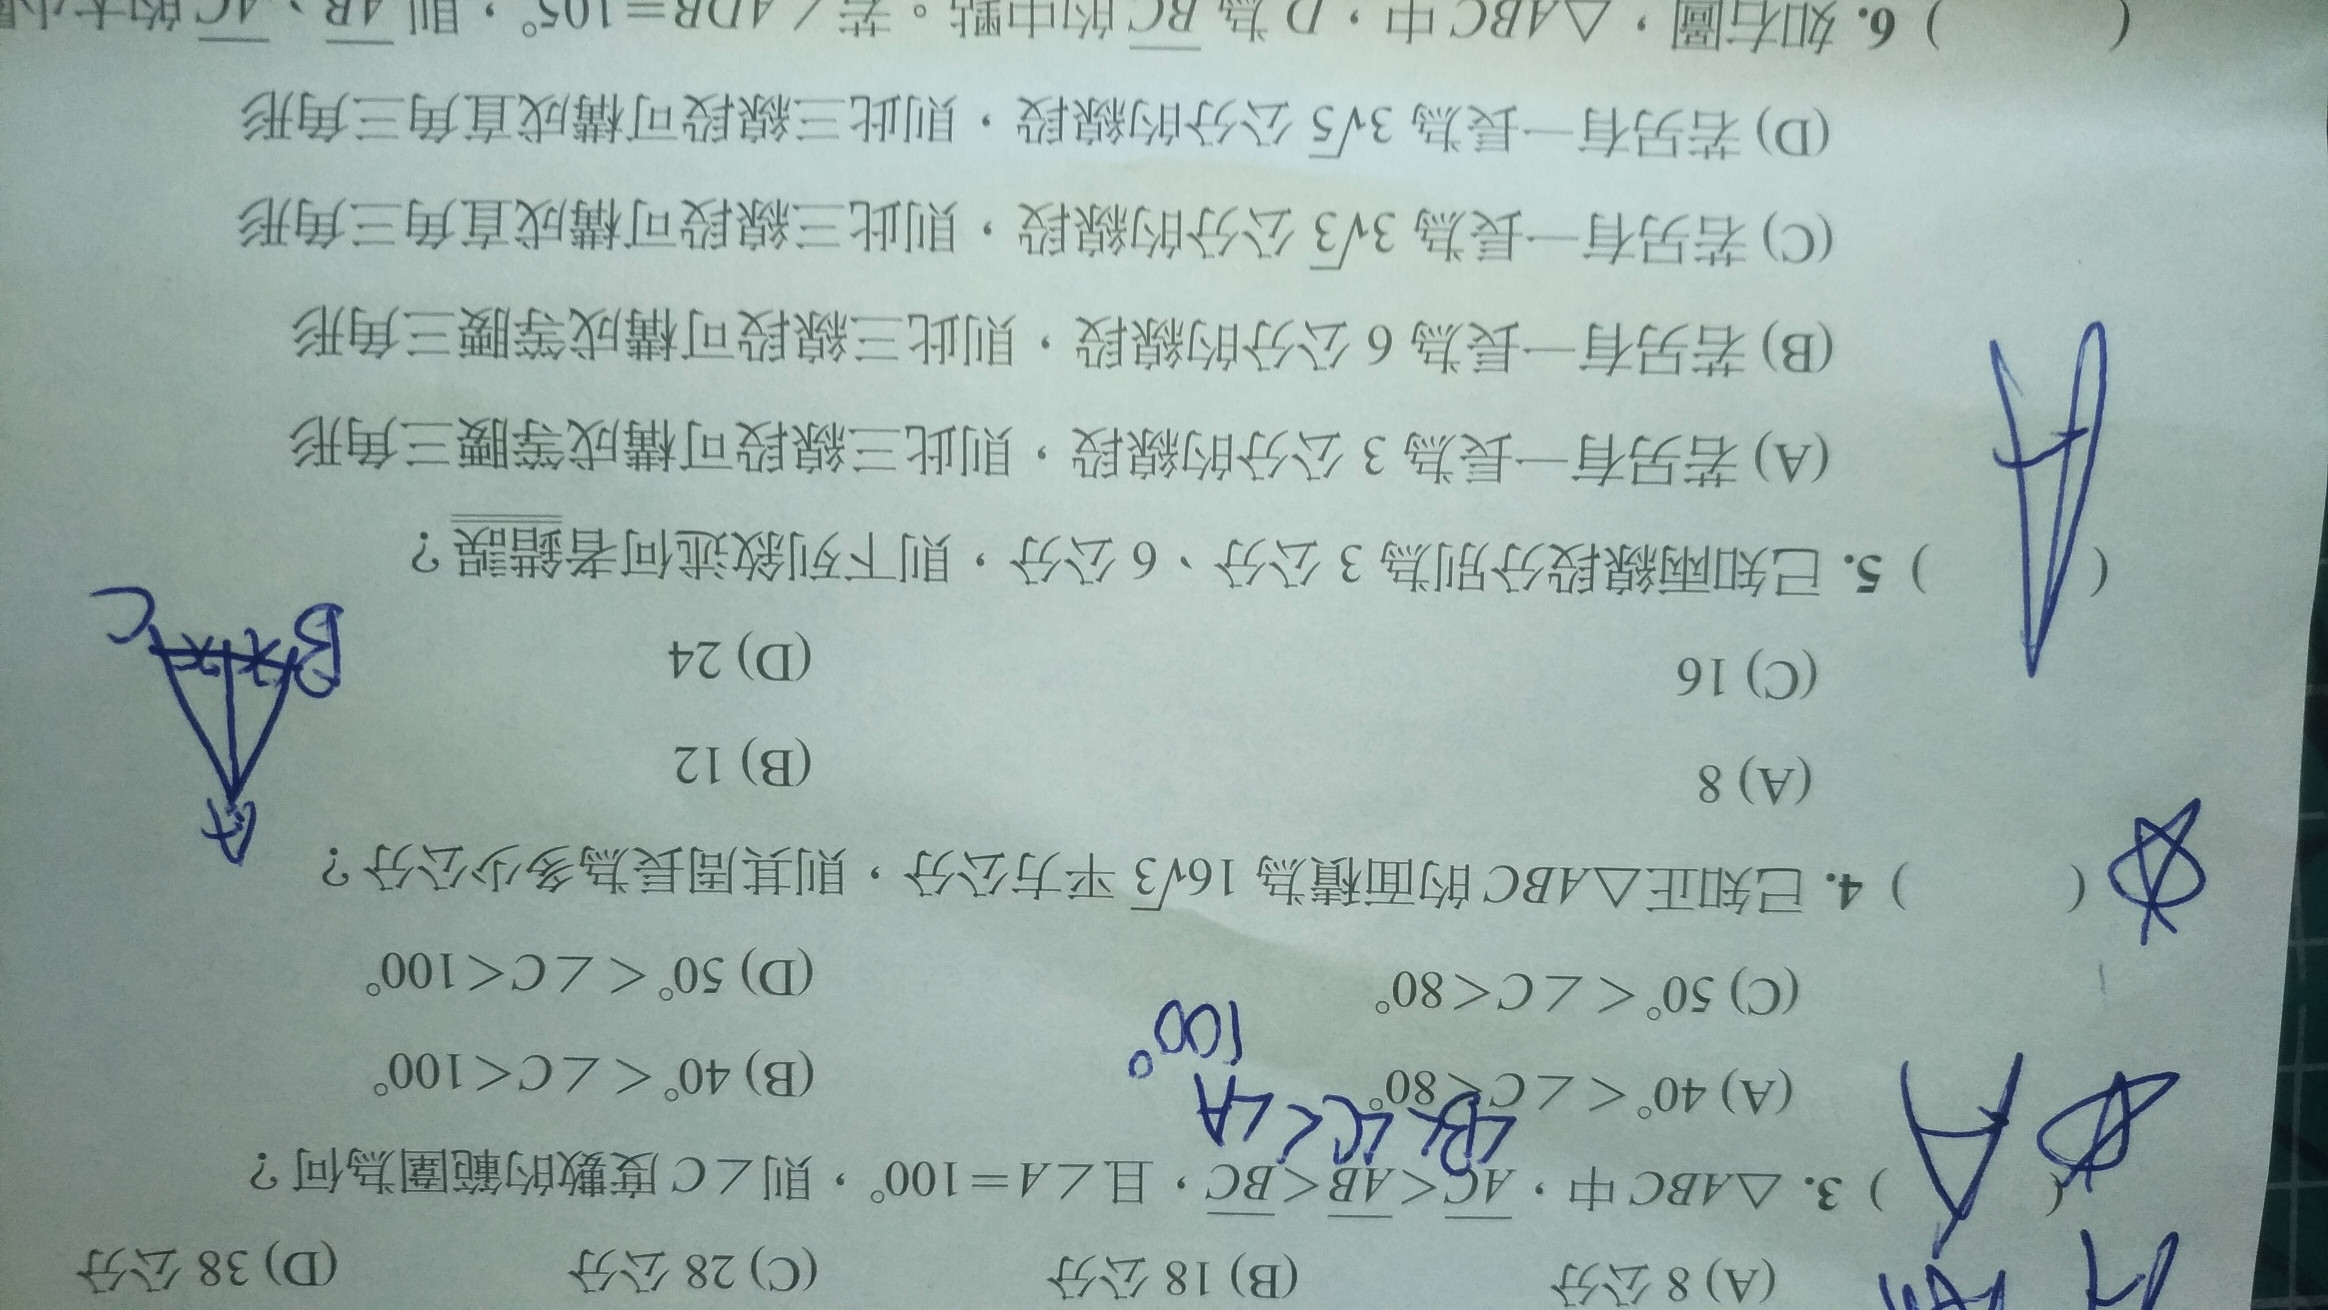 (A) 8 公分 (B) 18 公分 (C) 28 公分 (D) 38 公分
( A ) 3. △ABC 中，AC<AB<BC，且∠A=100°，則∠C 度數的範圍為何？
∠B<∠C<∠A
100°
(A) 40°<∠C<80° (B) 40°<∠C<100°
(C) 50°<∠C<80° (D) 50°<∠C<100°
( ) 4. 已知正△ABC 的面積為 16√3 平方公分，則其周長為多少公分？
A
(A) 8 (B) 12
(C) 16 (D) 24
B x x C
( A ) 5. 已知兩線段分別為 3 公分、6 公分，則下列敘述何者錯誤？
(A) 若另有一長為 3 公分的線段，則此三線段可構成等腰三角形
(B) 若另有一長為 6 公分的線段，則此三線段可構成等腰三角形
(C) 若另有一長為 3√3 公分的線段，則此三線段可構成直角三角形
(D) 若另有一長為 3√5 公分的線段，則此三線段可構成直角三角形
( ) 6. 如右圖，△ABC 中，D 為 BC 的中點。若∠ADB=105°，則 AB、AC 的大小